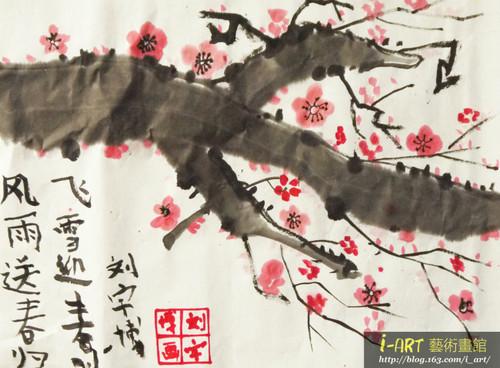 风雨送春归
飞雪迎春
刘宇博
刘宇博画
i-ART 藝術畫館
http://blog.163.com/i_art/